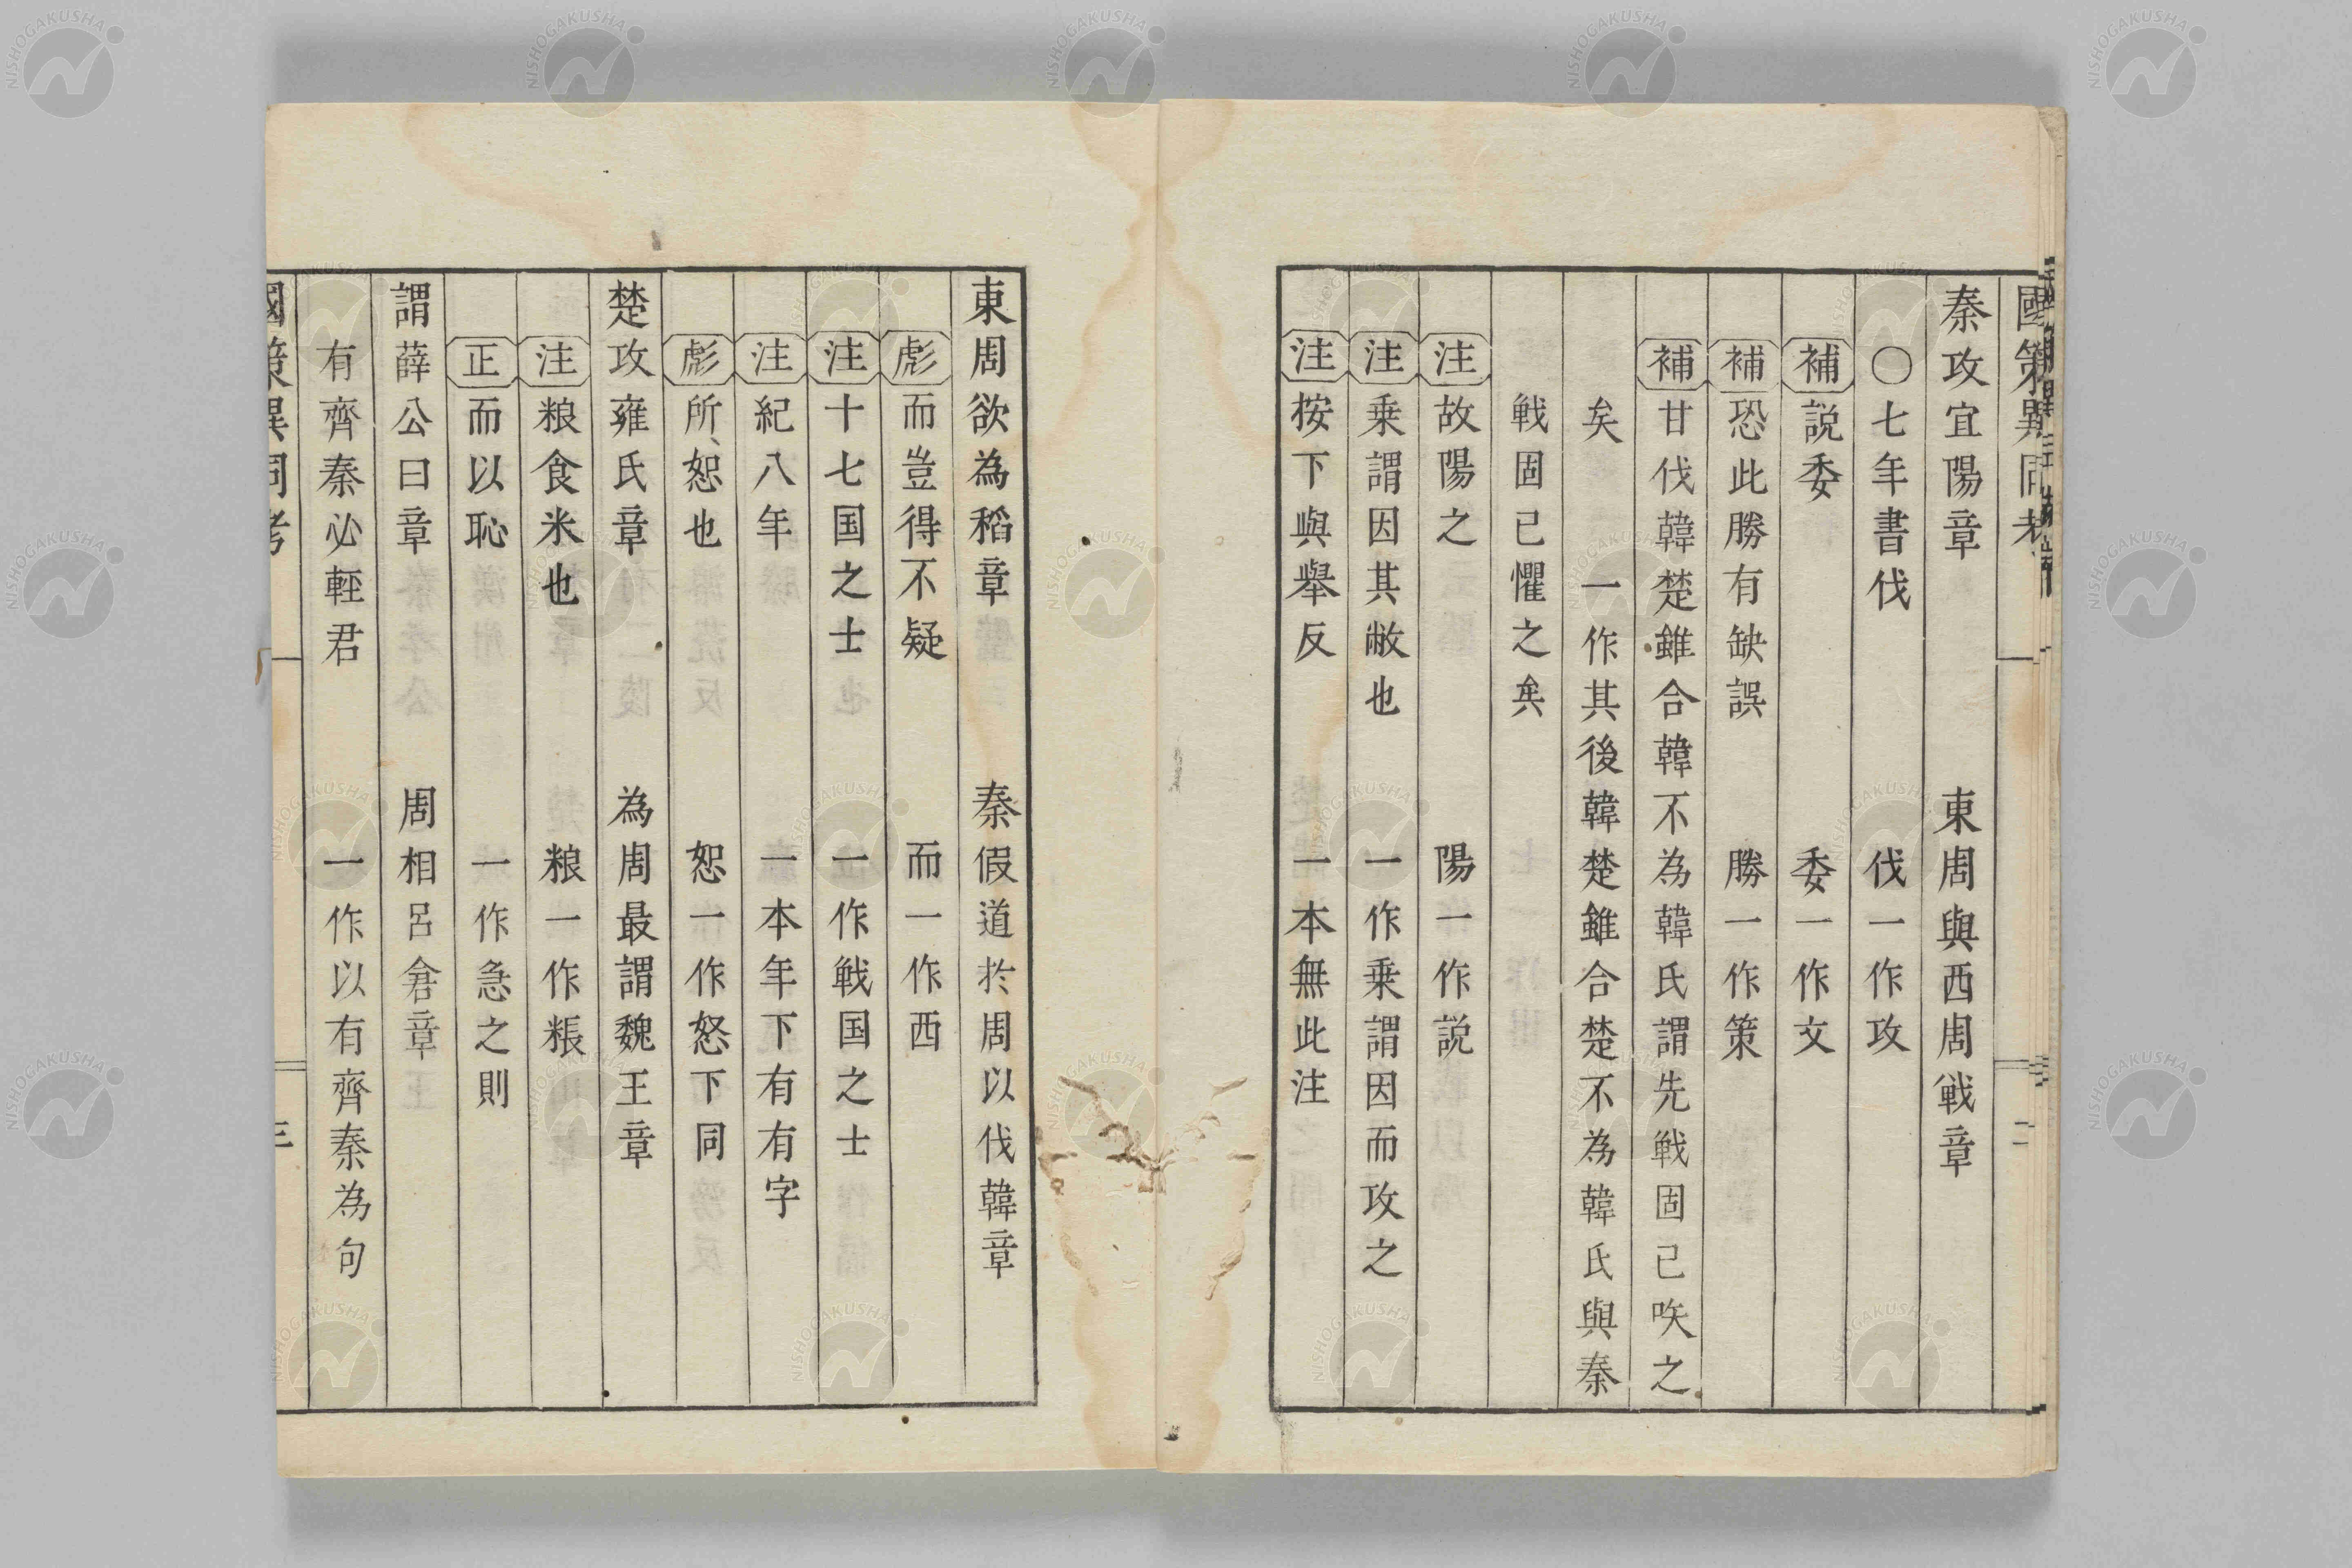 國策異同考 二
秦攻宜陽章 東周與西周戦章
〇七年書伐 伐一作攻
補 説委 委一作文
補 恐此勝有缺誤 勝一作策
補 甘伐韓楚雖合韓不為韓氏謂先戦固已唉之
矣 一作其後韓楚雖合楚不為韓氏與秦
戦固已懼之矣
注 故陽之 陽一作説
注 乗謂因其敝也 一作乗謂因而攻之
注 按下與舉反 一本無此注
東周欲為稻章 秦假道於周以伐韓章
彪 而豈得不疑 而一作西
注 十七国之士 一作戦国之士
注 紀八年 一本年下有有字
彪 所恕也 恕一作怒下同
楚攻雍氏章 為周最謂魏王章
注 粮食米也 粮一作粻
正 而以恥 一作急之則
謂薛公曰章 周相呂倉章
有齊秦必輊君 一作以有齊秦為句
國策異同考 三
NISHOGAKUSHA